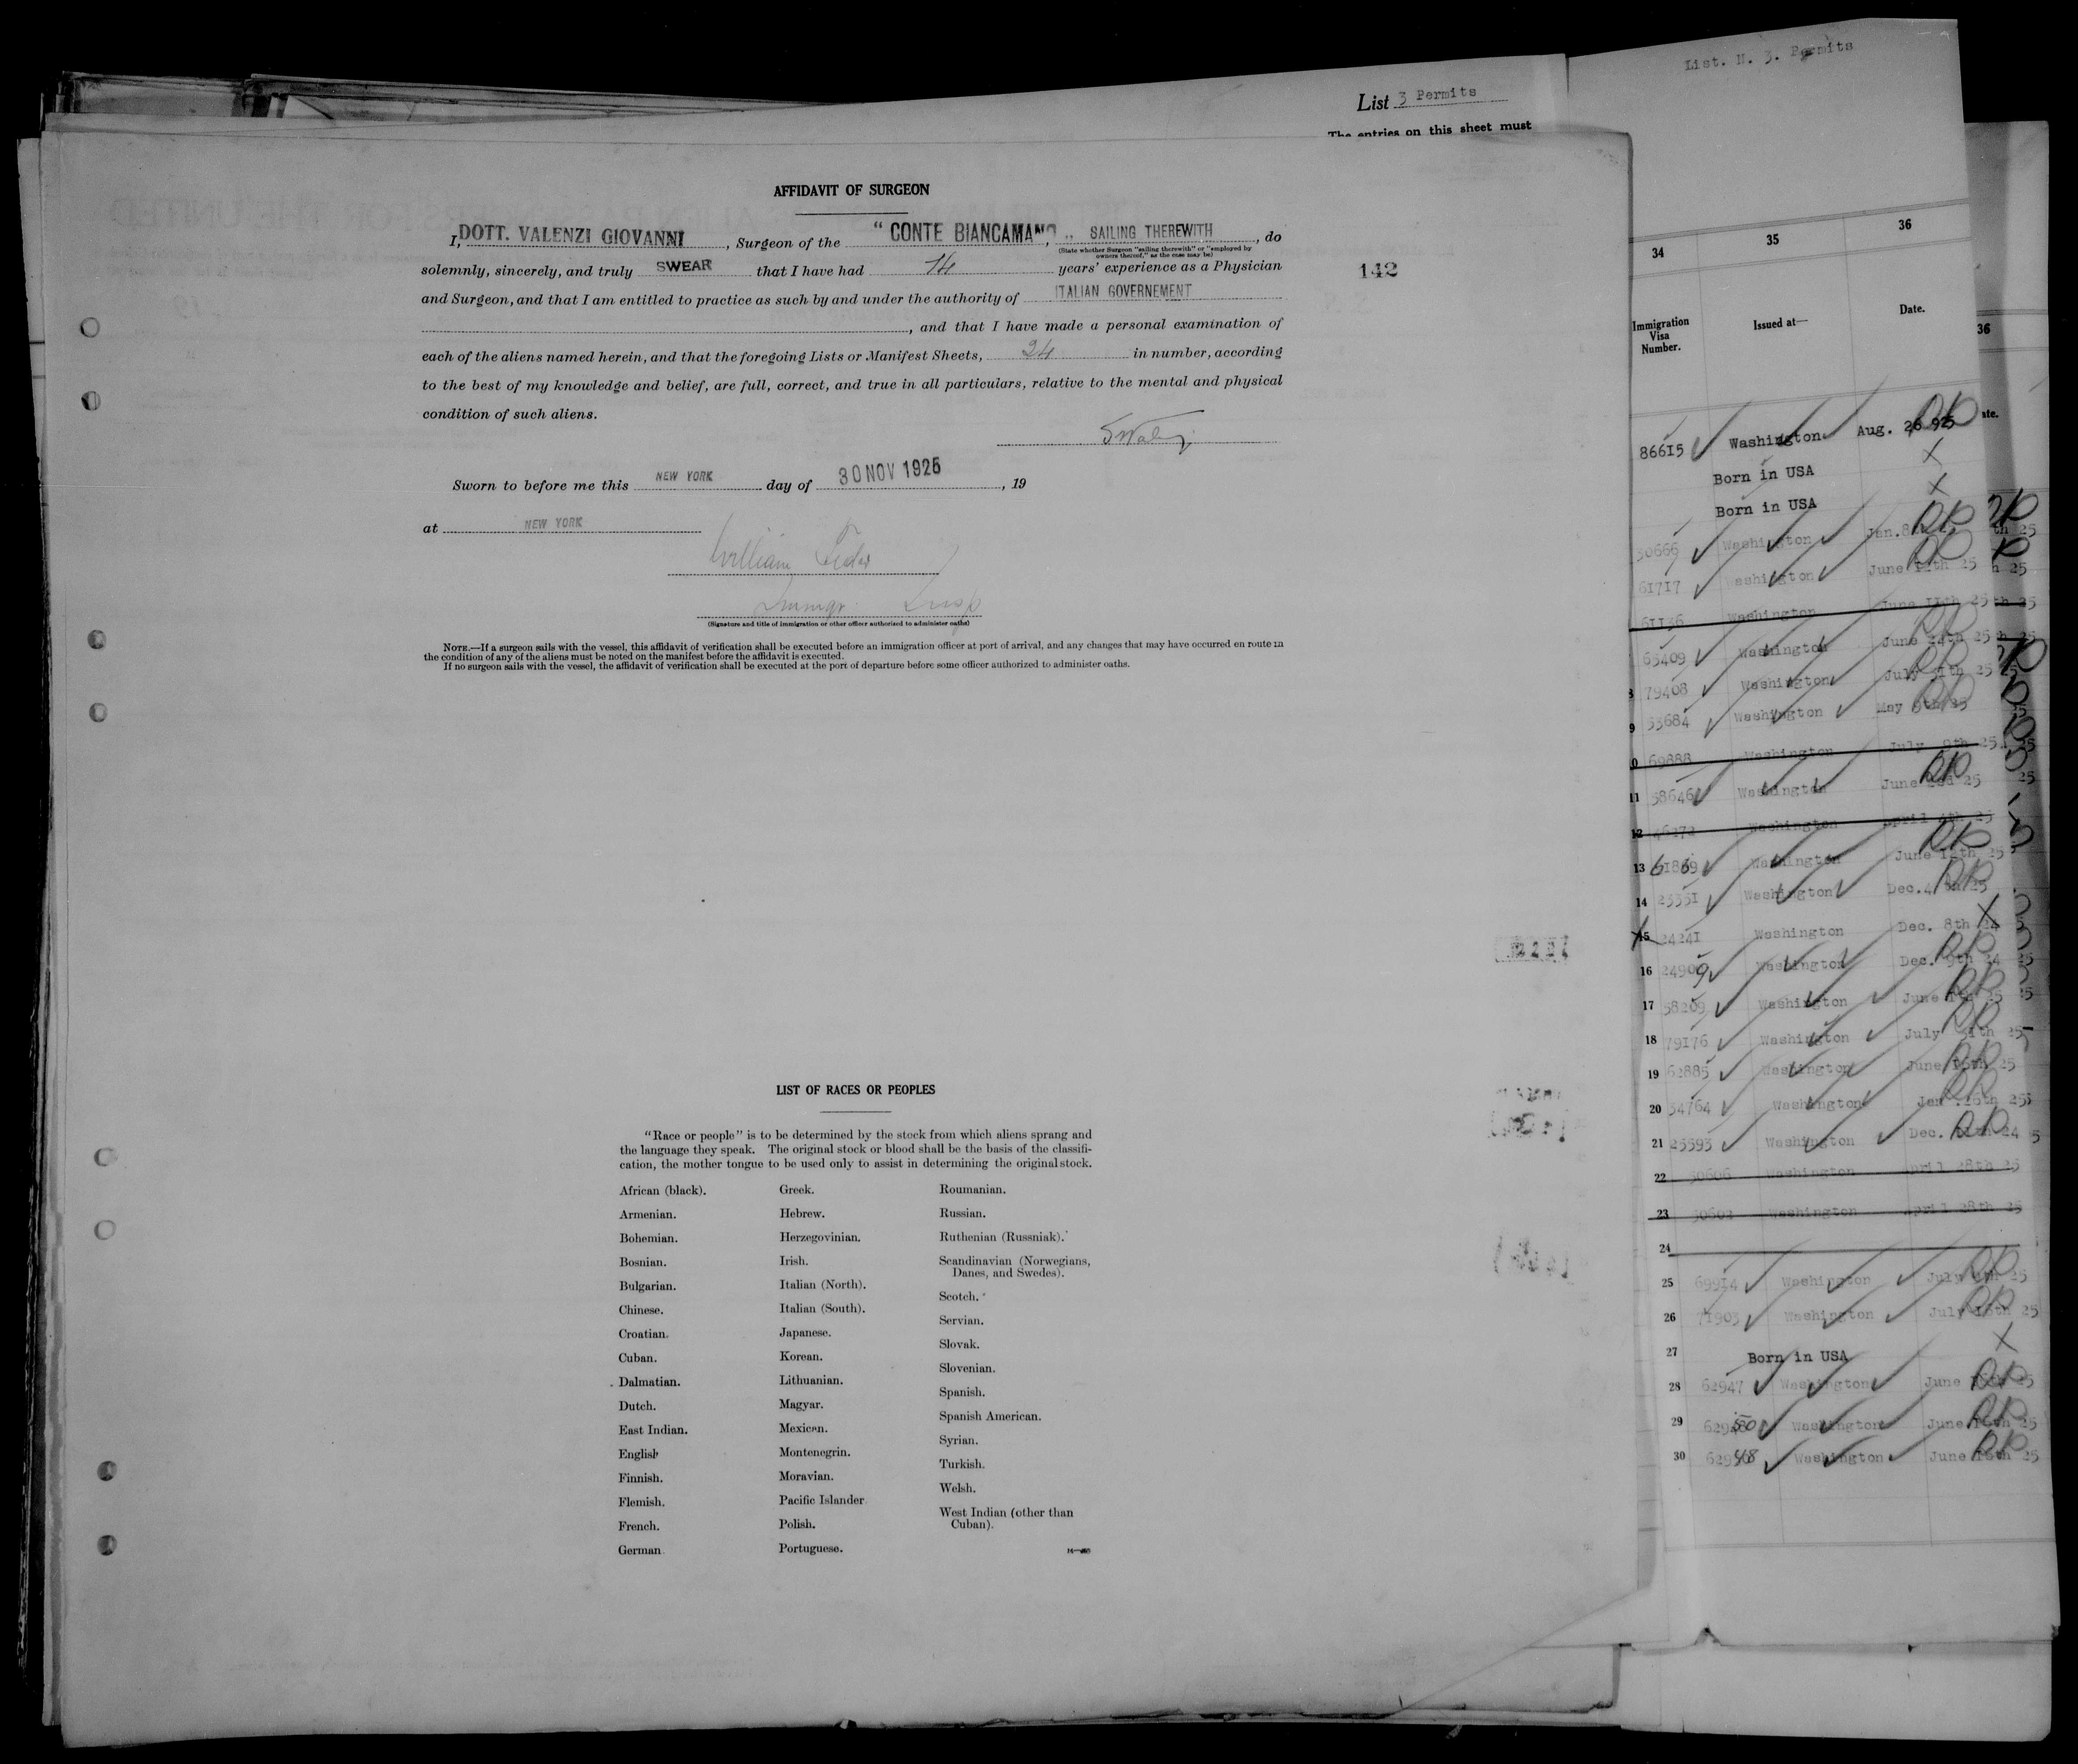 List. N. 3. Permits
List 3 Permits
The entries on this sheet must
AFFIDAVIT OF SURGEON
I, DOTT. VALENZI GIOVANNI, Surgeon of the "CONTE BIANCAMANO", SAILING THEREWITH, do
(State whether Surgeon "sailing therewith" or "employed by
owners thereof," as the case may be)
solemnly, sincerely, and truly SWEAR that I have had 14 years' experience as a Physician
142
and Surgeon, and that I am entitled to practice as such by and under the authority of ITALIAN GOVERNEMENT
, and that I have made a personal examination of
each of the aliens named herein, and that the foregoing Lists or Manifest Sheets, 24 in number, according
to the best of my knowledge and belief, are full, correct, and true in all particulars, relative to the mental and physical
condition of such aliens.
Sworn to before me this NEW YORK day of 30 NOV 1925, 19
at NEW YORK
William
Immgr. Insp
(Signature and title of immigration or other officer authorized to administer oaths)
NOTE.—If a surgeon sails with the vessel, this affidavit of verification shall be executed before an immigration officer at port of arrival, and any changes that may have occurred en route in
the condition of any of the aliens must be noted on the manifest before the affidavit is executed.
If no surgeon sails with the vessel, the affidavit of verification shall be executed at the port of departure before some officer authorized to administer oaths.
LIST OF RACES OR PEOPLES
"Race or people" is to be determined by the stock from which aliens sprang and
the language they speak. The original stock or blood shall be the basis of the classifi-
cation, the mother tongue to be used only to assist in determining the original stock.
African (black).
Armenian.
Bohemian.
Bosnian.
Bulgarian.
Chinese.
Croatian.
Cuban.
Dalmatian.
Dutch.
East Indian.
English
Finnish.
Flemish.
French.
German
Greek.
Hebrew.
Herzegovinian.
Irish.
Italian (North).
Italian (South).
Japanese.
Korean.
Lithuanian.
Magyar.
Mexican.
Montenegrin.
Moravian.
Pacific Islander
Polish.
Portuguese.
Roumanian.
Russian.
Ruthenian (Russniak).
Scandinavian (Norwegians,
Danes, and Swedes).
Scotch.
Servian.
Slovak.
Slovenian.
Spanish.
Spanish American.
Syrian.
Turkish.
Welsh.
West Indian (other than
Cuban).
34 35 36
Immigration
Visa
Number.
Issued at—
Date.
36
86615 Washington Aug. 26 925
Born in USA
Born in USA
30666 Washington Jan. 8th 25
61717 Washington June 12th 25
61136 Washington June 11th 25
65409 Washington June 24th 25
79408 Washington July 31th 25
9 53684 Washington May 25
69888 Washington July 9th 25
11 58646 Washington June 2nd 25
12 Washington April 4th 25
13 61869 Washington June 25
14 23351 Washington Dec. 4 25
15 24241 Washington Dec. 8th 24
16 24909 Washington Dec. 9th 24
17 58209 Washington June 25
18 79176 Washington July 31th 25
19 62885 Washington June 16th 25
20 34764 Washington Jan. 26th 25
21 25593 Washington Dec. 24
22 50606 Washington April 28th 25
23 50602 Washington April 28th 25
24
25 69914 Washington July 25
26 71903 Washington July 25
27 Born in USA
28 62947 Washington June 25
29 62950 Washington June 25
30 62948 Washington June 16th 25